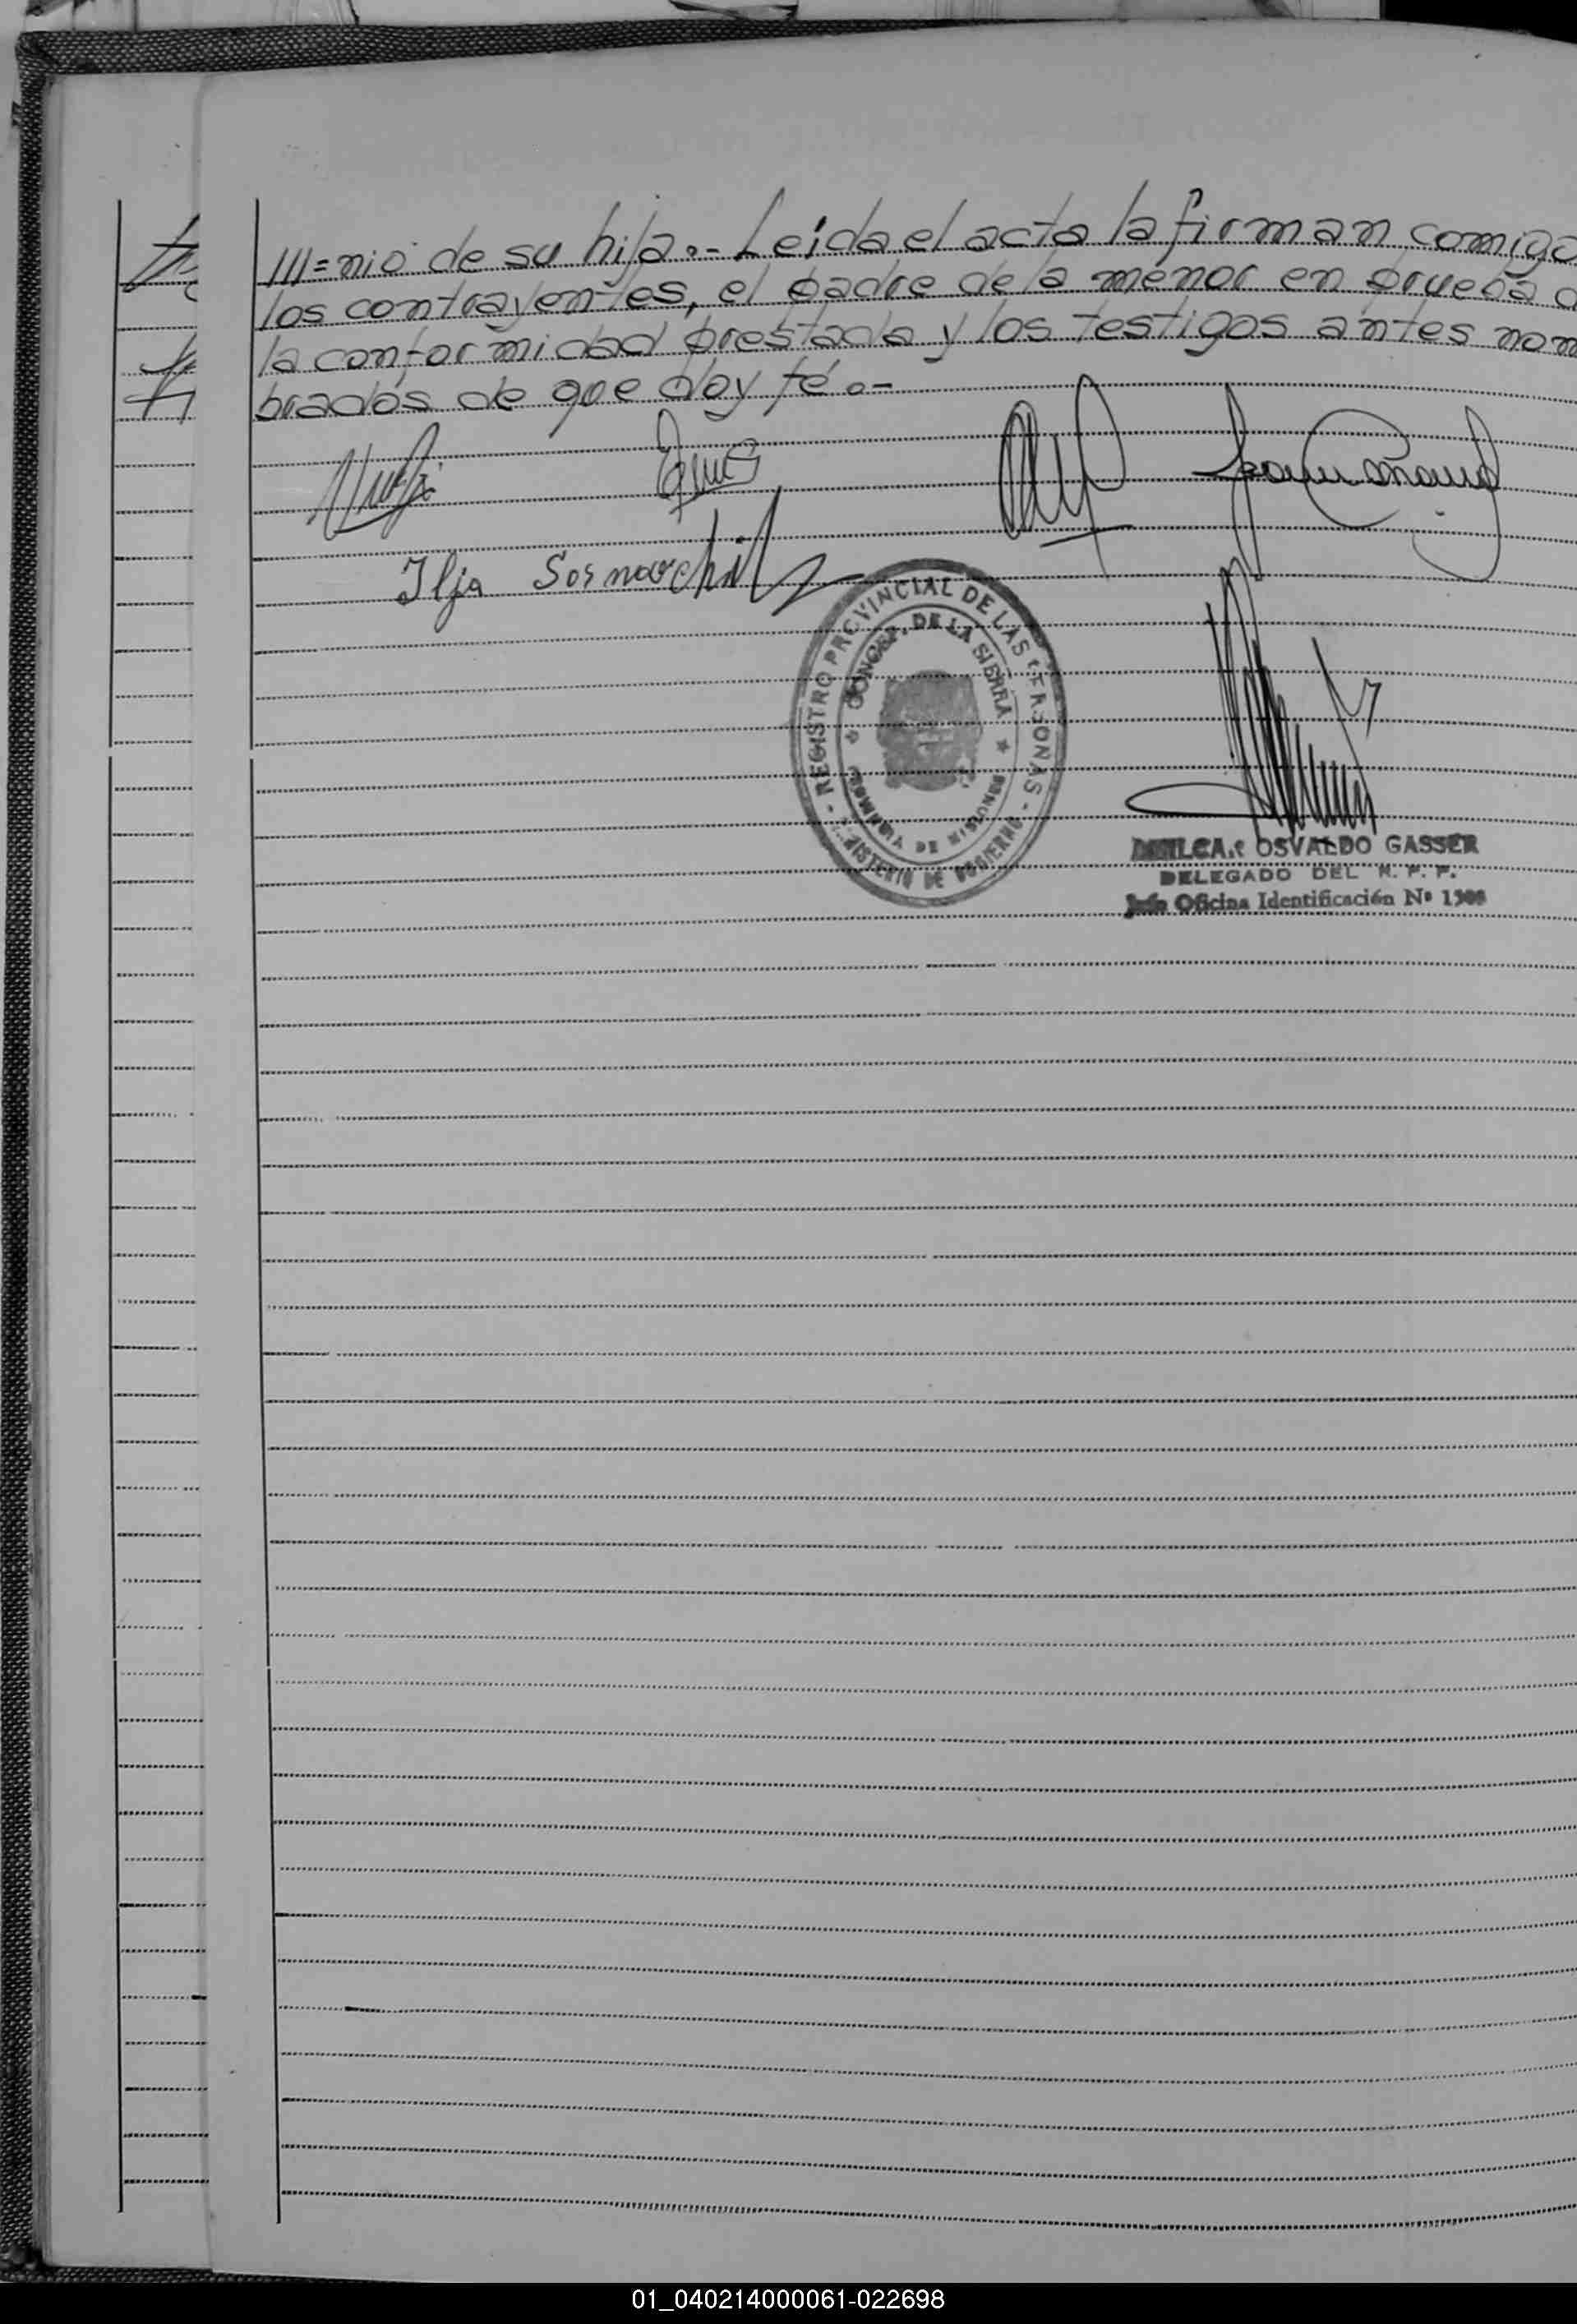 ///=nio de su hija.- Leída el acta la firman comigo
los contrayentes, el padre de la menor en prueba d
la conformidad prestada y los testigos antes nom
brados de que doy fé.-
Ilja
REGISTRO PROVINCIAL DE LAS PERSONAS
CONCEP. DE LA SIERRA
PROVINCIA DE MISIONES
MINISTERIO DE GOBIERNO
OSVALDO GASSER
DELEGADO DEL R. P. P.
Jefe Oficina Identificación Nº
01_040214000061-022698